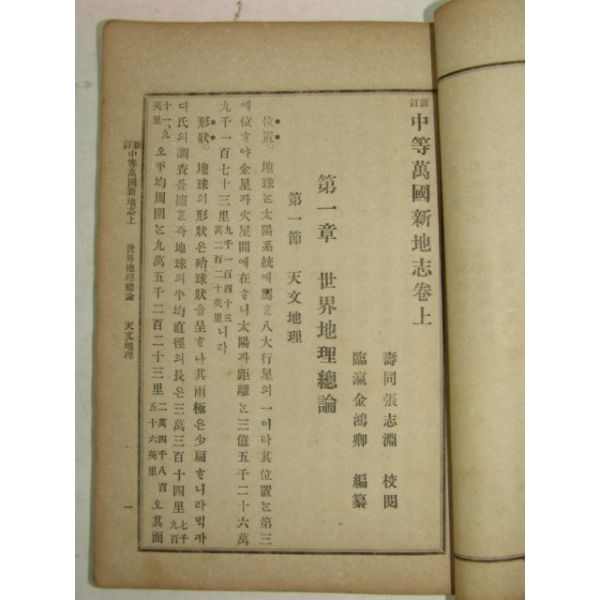 新訂 中等萬國新地志卷上
壽同張志淵 校閱
臨瀛金鴻卿 編纂
第一章 世界地理總論
第一節 天文地理
位置。地球ᄂᆞᆫ太陽系統에屬ᄒᆞᆫ八大行星의一이라其位置ᄂᆞᆫ第三
에位ᄒᆞ야金星과火星間에在ᄒᆞ니太陽과距離ᄂᆞᆫ三億五千二十六萬
九千一百七十三里九千一百四十三萬二百二十英里니라
形狀。地球의形狀은殆球狀을呈ᄒᆞ나其兩極은少扁ᄒᆞ니라
氏의調査를據ᄒᆞᆫ즉地球의平均直徑의長은三萬三百十四里七千九百
十一、九英里오平均周圍ᄂᆞᆫ九萬五千二百二十三里二萬四千八百五十六英里오其面
新訂中等萬國新地志上 世界地理總論 天文地理 一